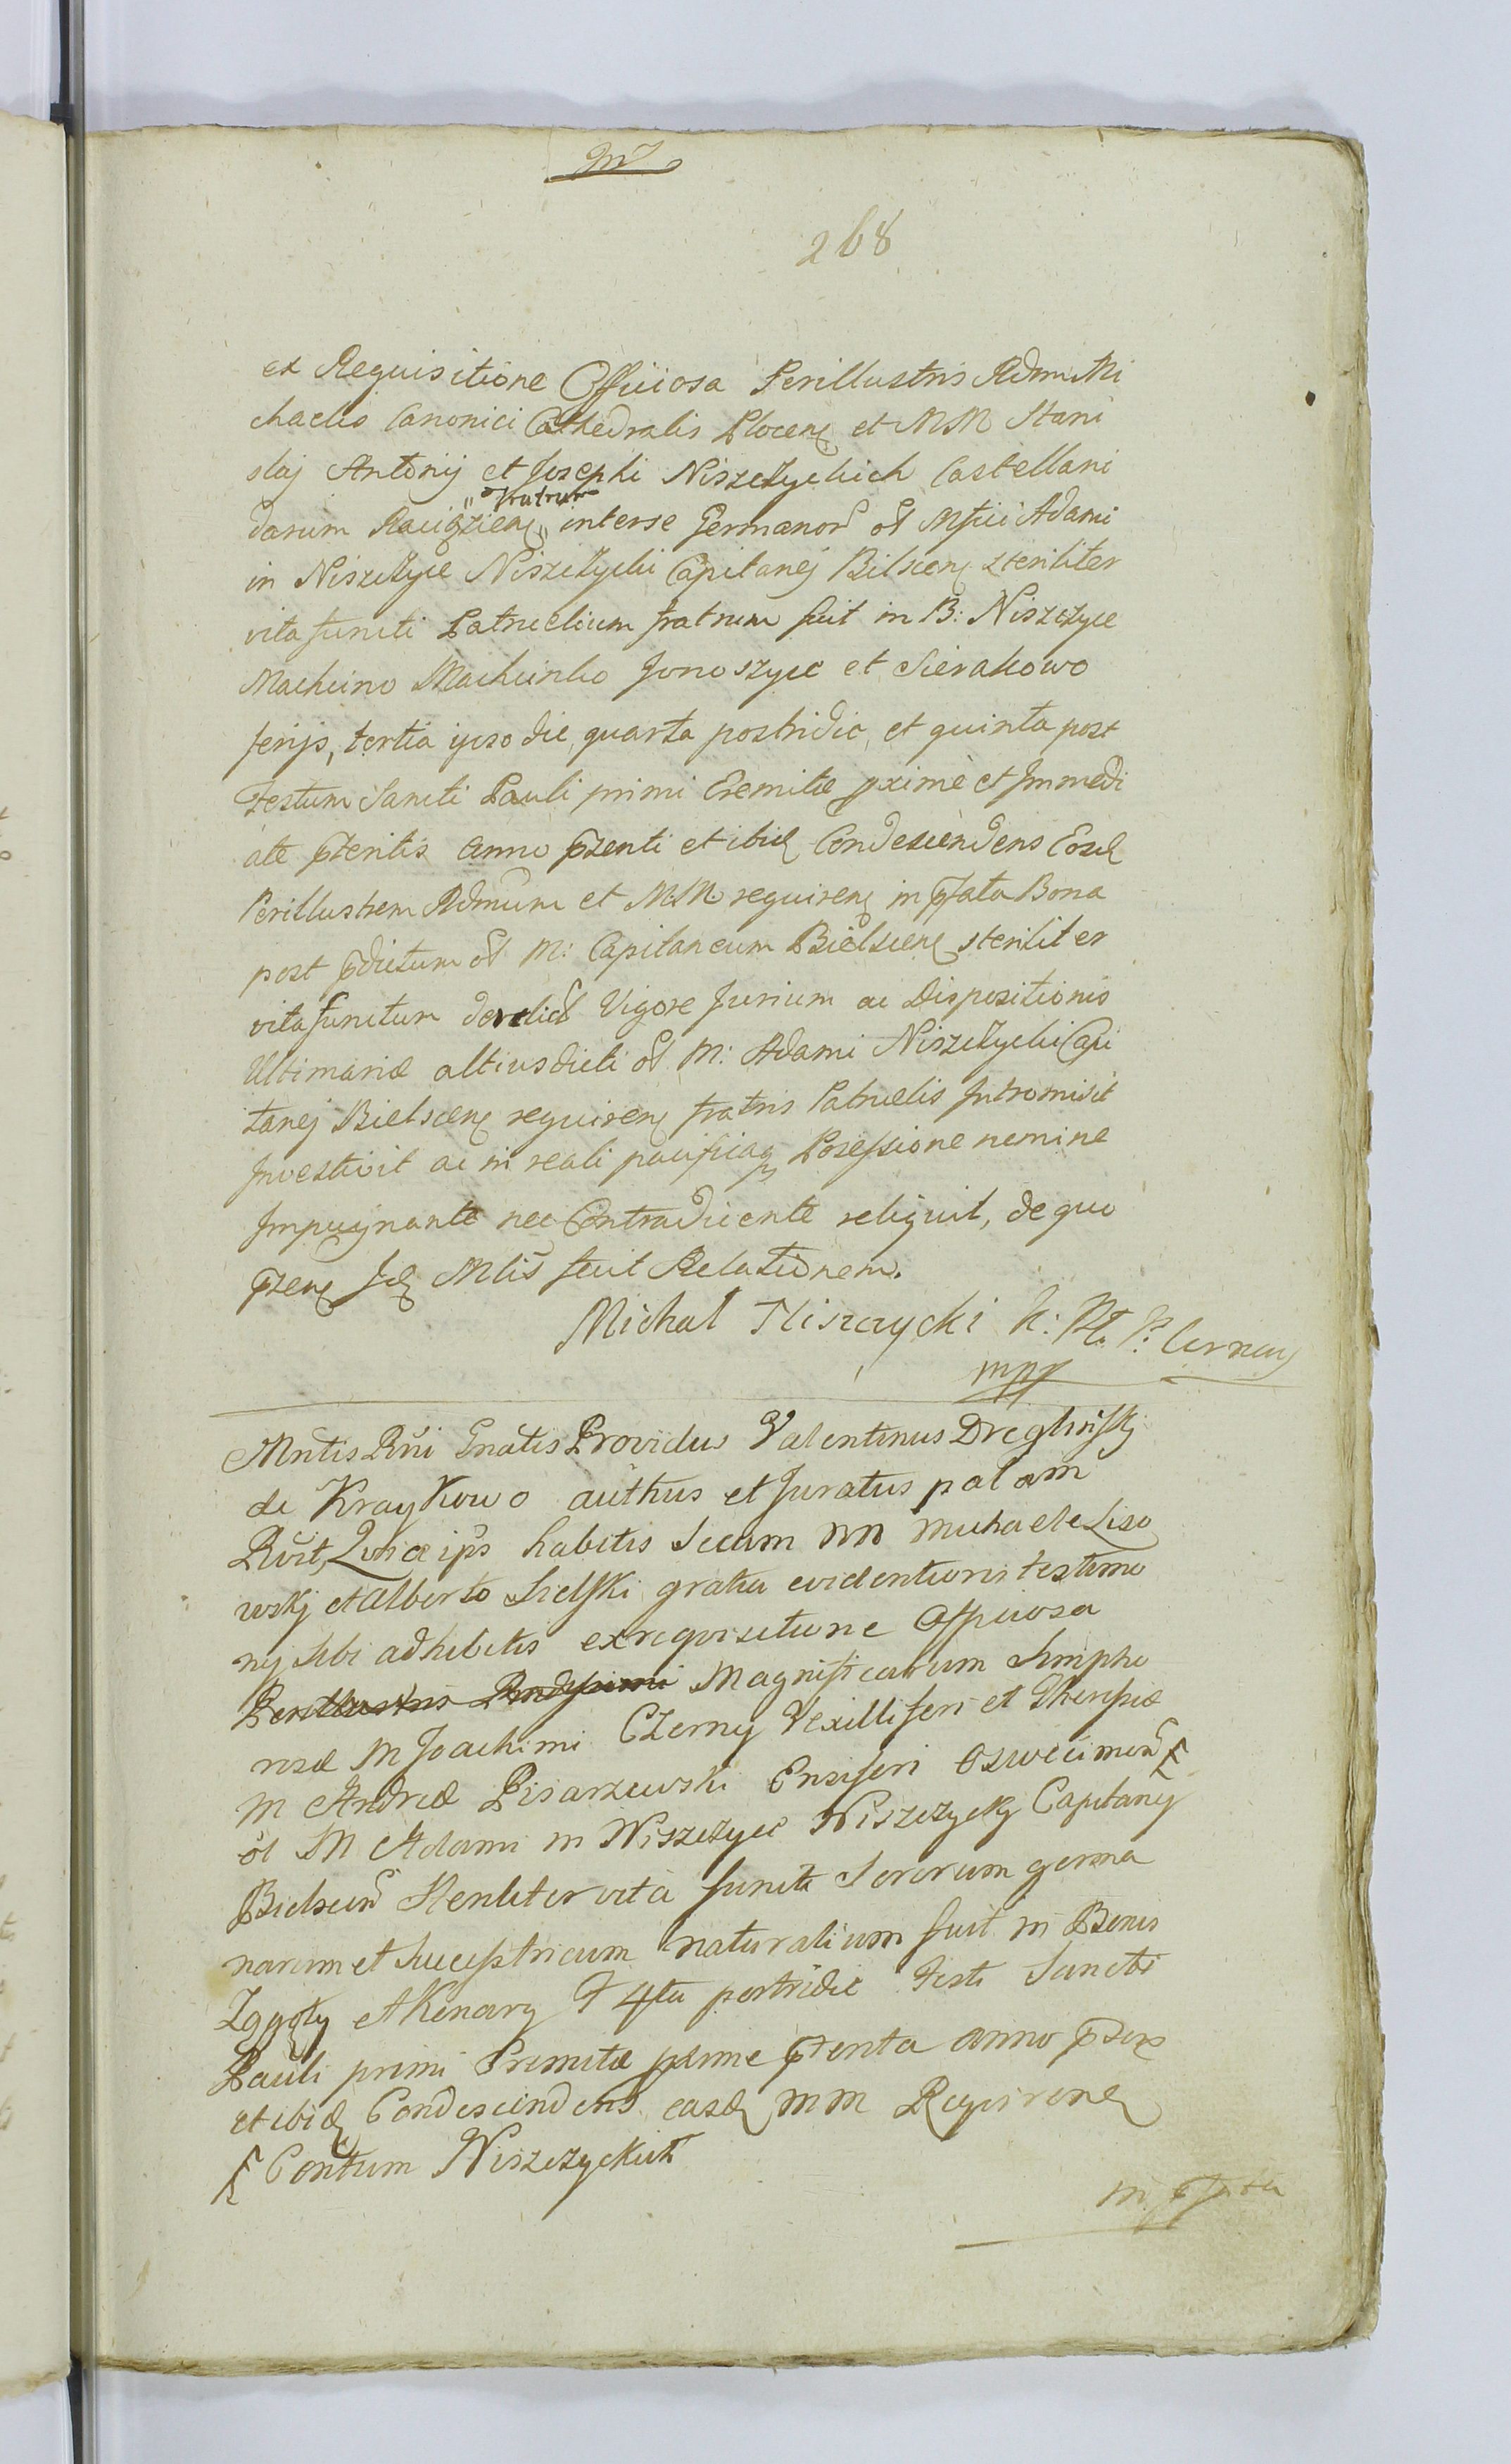 268
ex Requisitione Officiosa Perillustris Rdmi Mi
chaelis Canonici Cathedralis Plocen et MM Stani
slaj Antonij et Josephi Niszczyckich Castellani
darum Raciązien „Fratrum„ interse Germanor ol Mfici Adami
in Niszczyce Niszczycki Capitanej Bilscen steriliter
vita functi Patruelium fratrum fuit in B: Niszczyce
Machcino Machcinko Jonoszyce et Sierakowo
ferijs, tertia ipso die, quarta postridie, et quinta post
Festum Sancti Pauli primi Eremitæ pxime et Immedi
ate pteritis anno psenti et ibid Condescendens Eosd
Perillustrem Rdmum et MM requiren in pfata Bona
post pdictum ol M: Capitaneum Bielscen sterilit er
vita functum derelict Vigore Jurium ac Dispositionis
Ultimariæ altius dicti ol M: Adami Niszczycki Capi
tanej Bielscen requiren fratris Patruelis Intromisit
Investivit ac in reali pacificaq Possessione nemine
Impugnante nec Contradicente reliquit, de quo
psen Id Mlis fecit Relationem.
Michał Niszczycki K: Pł.
mpp
Mntis Rni Gnatis Providus Valentinus Dreglinsky
de Kraykowo authus et Juratus palam
ips habitis secum nn Michaele Liso
wskj et Alberto Sielski gratia evidentioris testimo
nij sibi adhibitis ex requisitione Officiosa
Perillustris Magnificarum Simpho
rosæ M Joachimi Czerny Vexilliferi et Theresiæ
M Andreæ Pisarzewski Ensiferi Oswiecimen
ol M Adami in Niszczyce Niszczyckj Capitanej
Bielscen Steriliter vita functi Sororum germa
narum et Successtricum naturalium fuit in Bonis
Zągoty et Kenary F 4ta postridie Festi Sancti
Pauli primi Eremitæ pxime pterita anno psen
et ibid Condescendens easd MM Requiren
Contum Niszczyckich
in pfata